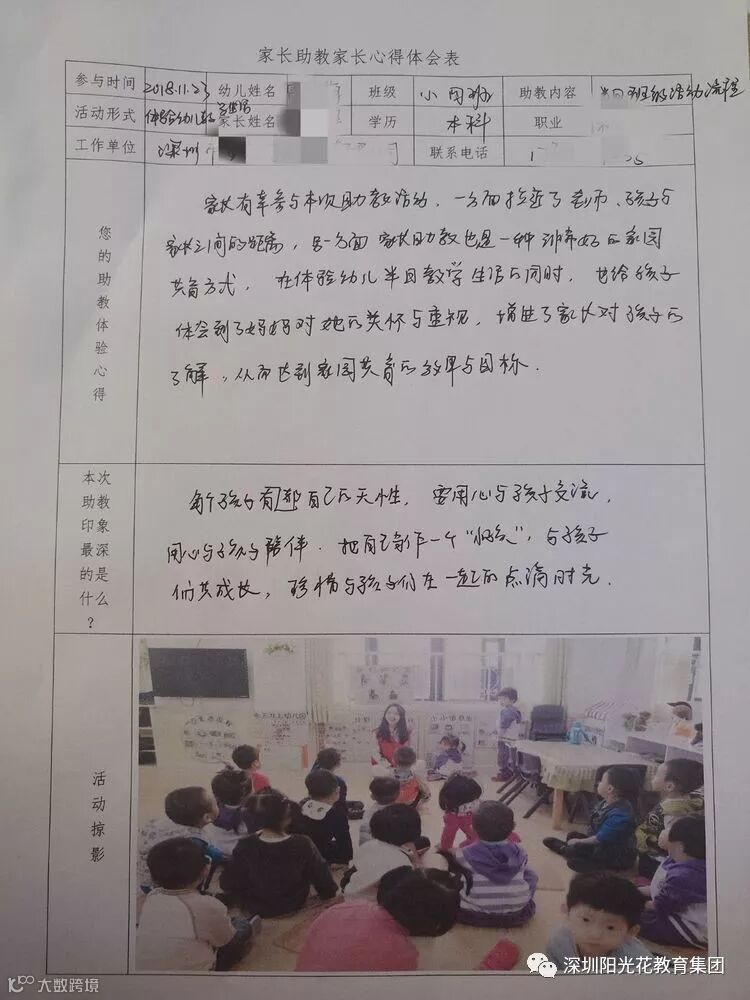 家长助教家长心得体会表
参与时间 2018.11.23 幼儿姓名 班级 小四班 助教内容 半日班级活动流程
活动形式 体验幼儿园 家长姓名 学历 本科 职业
工作单位 深圳 联系电话
您的助教体验心得
家长有幸参与本次助教活动，一方面拉近了老师、孩子与
家长之间的距离，另一方面家长助教也是一种非常好的家园
共育方式，在体验幼儿半日教学生活的同时，也给孩子
体会到了妈妈对她的关怀与重视，增进了家长对孩子的
了解，从而达到家园共育的效果与目标．
本次助教印象最深的是什么？
每个孩子有都自己的天性，要用心与孩子交流，
用心与孩子陪伴．把自己当作一个
，与孩子
们共成长，珍惜与孩子们在一起的点滴时光．
活动掠影
大数跨境
深圳阳光花教育集团